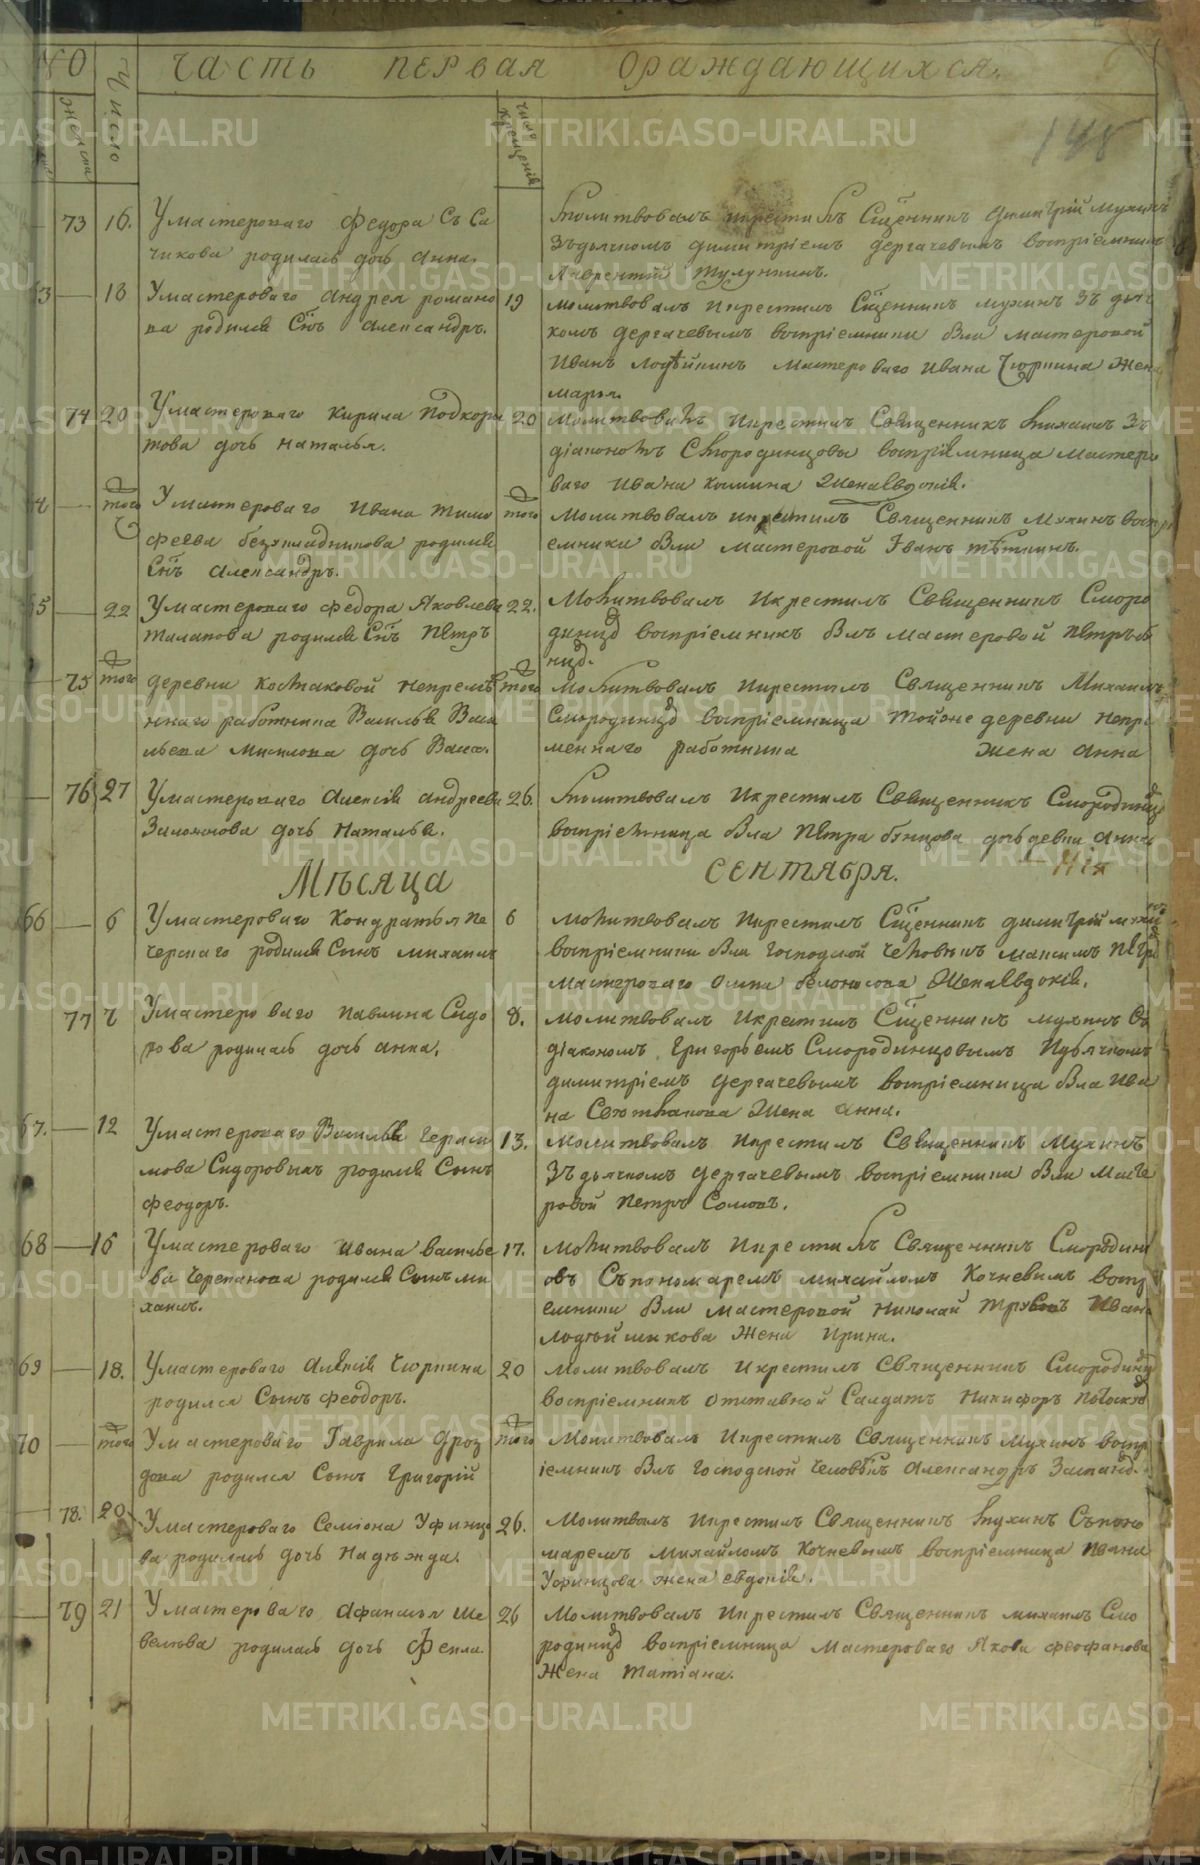 № Число ЧАСТЬ ПЕРВАЯ ОРАЖДАЮЩИХСЯ.
женска
число крещенiя
148
73 16. Умастероваго Федора
чикова родилась дочь Анна.
Молитвовалъ икрестилъ Сщенникъ Димитрiй Мухинъ
Зъдьячкомъ Димитрiемъ Дергачевымъ воспрiемникъ
Лаврентий Тулункинъ.
63 — 18 Умастероваго Андрея Романо
ва родился Снъ Александръ.
19 Молитвовалъ Икрестилъ Сщенникъ Мухинъ Зъ дьяч
комъ Дергачевымъ воспрiемники Были мастеровой
Иванъ Лодѣйкинъ Мастероваго Ивана Чюркина Жена
Марья.
74 20 Умастероваго Кирила Подкоры
това дочь Наталья.
20 Молитвовалъ Икрестилъ Священникъ Михаилъ Зъ
дiакономъ Смородинцовы воспрiемница Мастеро
ваго Ивана Кошкина Жена Евдокiя.
64 — того Умастероваго Ивана Тимо
феева безукладникова родился
Снъ Александръ.
того Молитвовалъ икрестилъ Священникъ Мухинъ воспрi
емники Были Мастеровой Iванъ
65 — 22 Умастероваго Федора Яковлева
Талапова родился Снъ Петръ
22. Молитвовалъ Икрестилъ Священникъ Сморо
динцо воспрiемникъ Былъ мастеровой Петръ
нцо.
— 75 того деревни Костаковой Непремѣ
ннаго работника Василья Васи
льева дочь
того Молитвовалъ Икрестилъ Священникъ Михаилъ
Смородинцо воспрiемница тойже деревни Непре
меннаго работника Жена Анна
— 76 27 Умастероваго Алексiя Андреева
дочь Наталья.
26. Молитвовалъ Икрестилъ Священникъ Смородинцо
воспрiемница Была Петра дочь девка Анна
Мѣсяца СЕНТЯБРЯ.
66 — 6 Умастероваго Кондратья Пе
черскаго родился Сынъ Михаилъ
6 Молитвовалъ Икрестилъ Сщенникъ Димитрiй Мухи
воспрiемники Были Господской Человѣкъ Максимъ
Мастероваго Осипа Белоносова Жена Евдокiя.
77 7 Умастероваго Павлина Сидо
рова родилась дочь Анна.
8. Молитвовалъ Икрестилъ Сщенникъ Мухинъ Съ
дiакономъ Григорьемъ Смородинцовымъ Идьячкомъ
Димитрiемъ Дергачевымъ воспрiемница Была Ива
на Жена Анна.
67. — 12 Умастероваго Василья Гераси
мова Сидоровыхъ родился Сынъ
Феодоръ.
13. Молитвовалъ Икрестилъ Священникъ Мухинъ
Зъ дьячкомъ Дергачевымъ воспрiемники Были Масте
ровой Петръ Сомовъ.
68 — 16 Умастероваго Ивана Василье
ва Черепанова родился Сынъ Ми
хаилъ.
17. Молитвовалъ Икрестилъ Священникъ Смородинц
овъ Съпономаремъ Михайломъ Кочневымъ воспр
емники Были Мастеровой Николай Ивана
Лодѣйщикова Жена Ирина.
69 — 18. Умастероваго Алексiя Чюркина
родился Сынъ Феодоръ.
20 Молитвовалъ Икрестилъ Священникъ Смородинцо
воспрiемникъ Отставной Салдатъ Никифоръ
70 — того Умастероваго Гаврила Дроз
дова родился Сынъ Григорiй
того Молитвовалъ Икрестилъ Священникъ Мухинъ воспр
iемникъ Былъ Господской Человѣкъ Александръ
— 78. 20 Умастероваго Семiона Уфинцо
ва родилась дочь Надѣжда.
26. Молитвалъ Икрестилъ Священникъ Мухинъ Съпоно
маремъ Михайломъ Кочневымъ воспрiемница Ивана
Уфинцова жена Евдокiя.
— 79 21 Умастероваго Афанасья Ше
велева родилась дочь Фекла.
26 Молитвовалъ Икрестилъ Священникъ Михаилъ Смо
родинцо воспрiемница Мастероваго Якова Феофанова
Жена Татiана.
METRIKI.GASO-URAL.RU